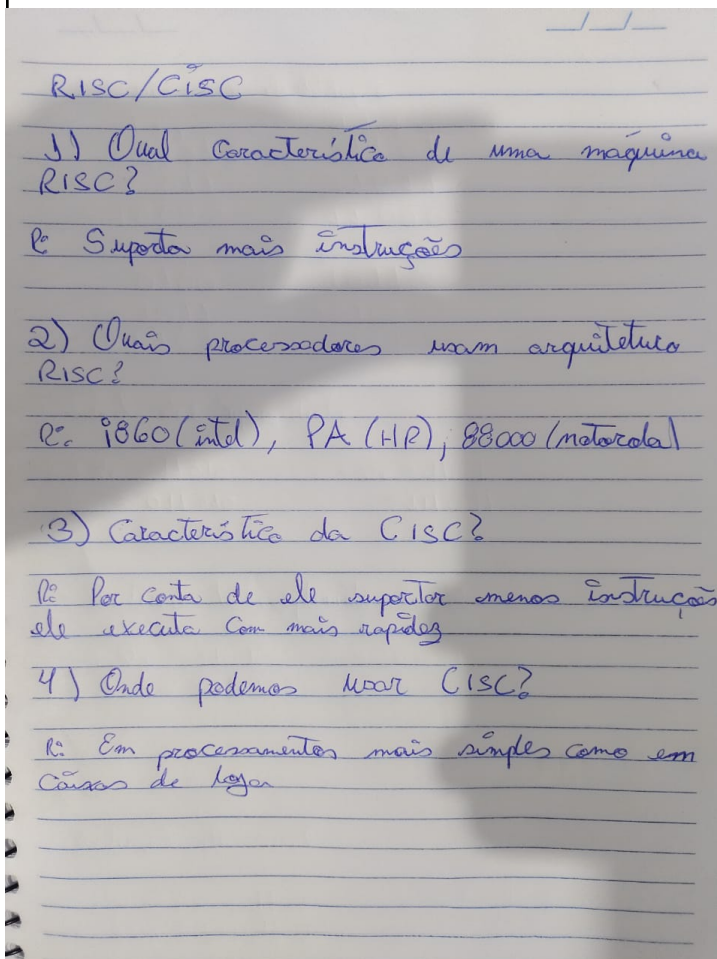 RISC/CISC
1) Qual característica de uma máquina
RISC?
R: Suporta mais instruções
2) Quais processadores usam arquitetura
RISC?
R: i860 (intel), PA (HP), 88000 (motorola)
3) Característica da CISC?
R: Por conta de ele suportar menos instruções
ele executa com mais rapidez
4) Onde podemos usar CISC?
R: Em processamentos mais simples como em
caixas de loja